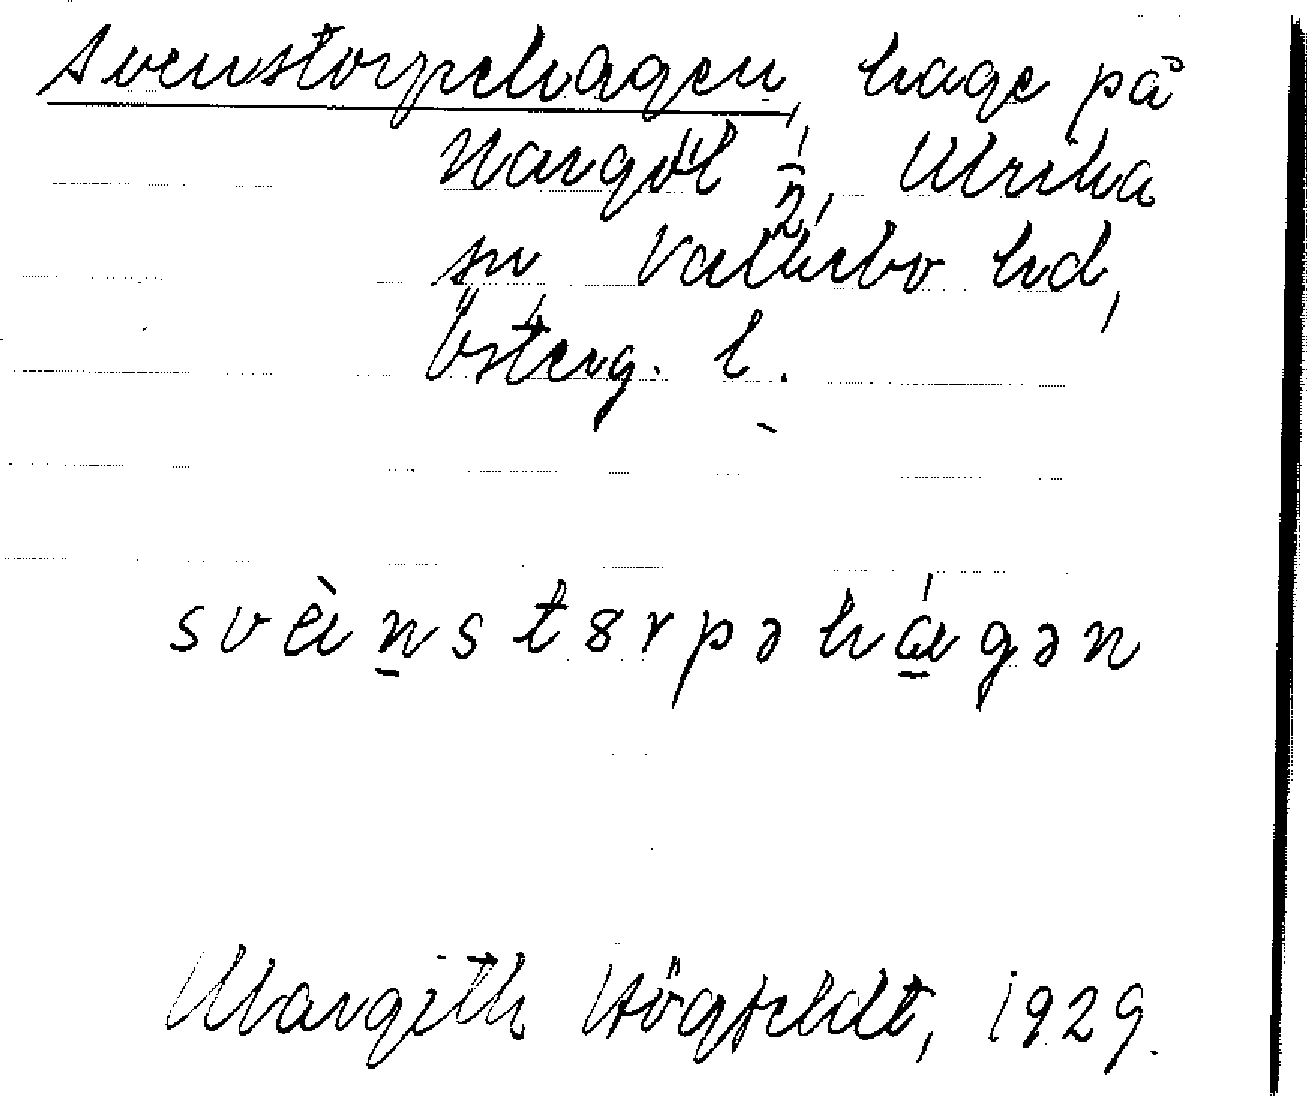 Svenstorpehagen, hage på
Nargöl 1/2, Ulrika
sn, Valkebo hd,
Österg. l.
svὲn̠stɤrpəhɑ̠́gən
Margith Högfeldt, 1929.